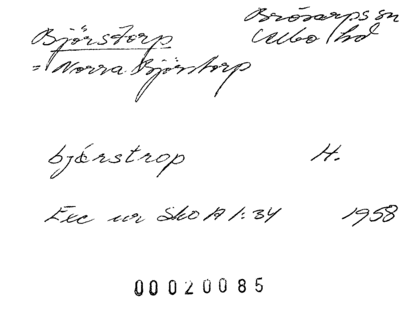 Björstorp
Brösarps sn
Albo hd
= Norra Björstorp
bjǽrstrop H.
Exc ur SkO A 1:34 1958
00020085